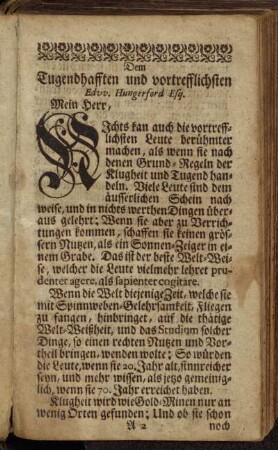 Dem
Tugendhafften und vortrefflichsten
Edvv. Hungerford Esq.
Mein Herr,
NIchts kan auch die vortreff-
lichsten Leute berühmter
machen, als wenn sie nach
denen Grund-Regeln der
Klugheit und Tugend han-
deln. Viele Leute sind dem
äusserlichen Schein nach
weise, und in nichts werthen Dingen über-
aus gelehrt; Wenn sie aber zu Verrich-
tungen kommen, schaffen sie keinen grös-
sern Nutzen, als ein Sonnen-Zeiger in ei-
nem Grabe. Das ist der beste Welt-Wei-
se, welcher die Leute vielmehr lehret pru-
denter agere, als sapienter cogitare.
Wenn die Welt diejenige Zeit, welche sie
mit Spinnweben-Gelehrsamkeit, Fliegen
zu fangen, hinbringt, auf die thätige
Welt-Weißheit, und das Studium solcher
Dinge, so einen rechten Nutzen und Vor-
theil bringen, wenden wolte; So würden
die Leute, wenn sie 20. Jahr alt, sinnreicher
seyn, und mehr wissen, als jetzo gemeinig-
lich, wenn sie 70. Jahr erreichet haben.
Klugheit wird wie Gold-Minen nur an
wenig Orten gefunden; Und ob sie schon
A 2 noch